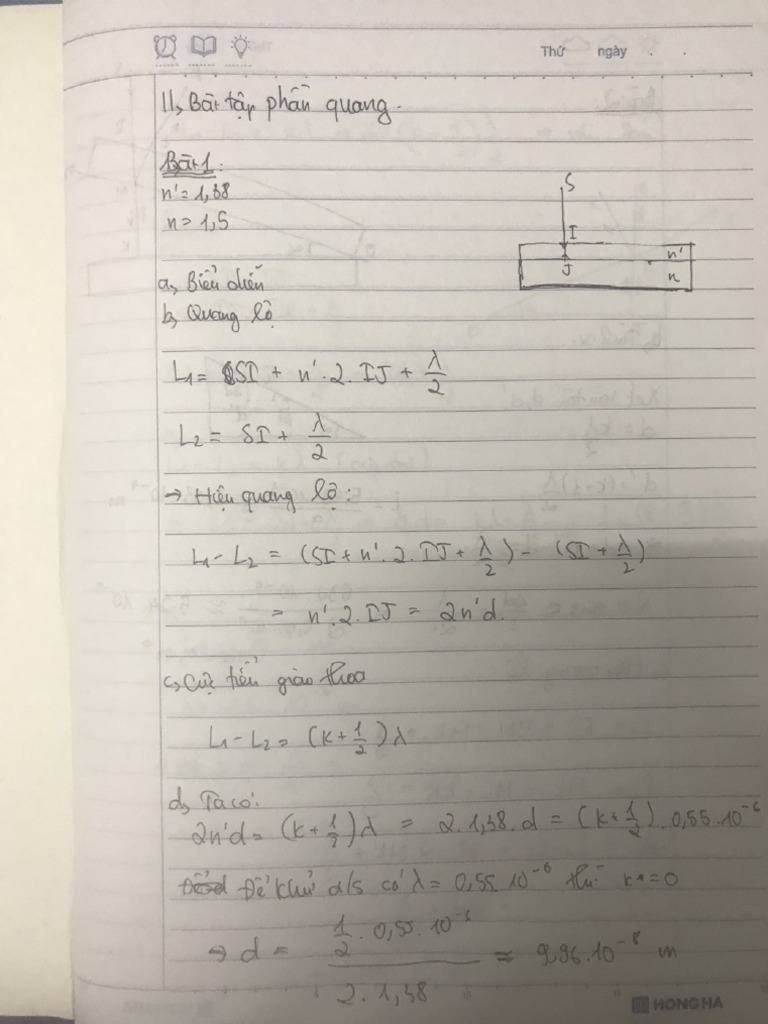 Thứ ngày
II, Bài tập phần quang.
Bài 1:
n' = 1,38
n = 1,5
S
I
J
n'
n
a, Biểu diễn
b, Quang lộ
L1 = SI + n'.2.IJ + λ/2
L2 = SI + λ/2
→ Hiệu quang lộ:
L1 - L2 = (SI + n'.2.IJ + λ/2) - (SI + λ/2)
= n'.2.IJ = 2n'd.
c, Cực tiểu giao thoa
L1 - L2 = (k + 1/2)λ
d, Ta có:
2n'd = (k + 1/2)λ = 2.1,38.d = (k + 1/2).0,55.10^-6
Để khử a/s có λ = 0,55.10^-6 thì k = 0
→ d = (1/2 . 0,55.10^-6) / (2.1,38) ≈ 9,96.10^-8 m
HONG HA